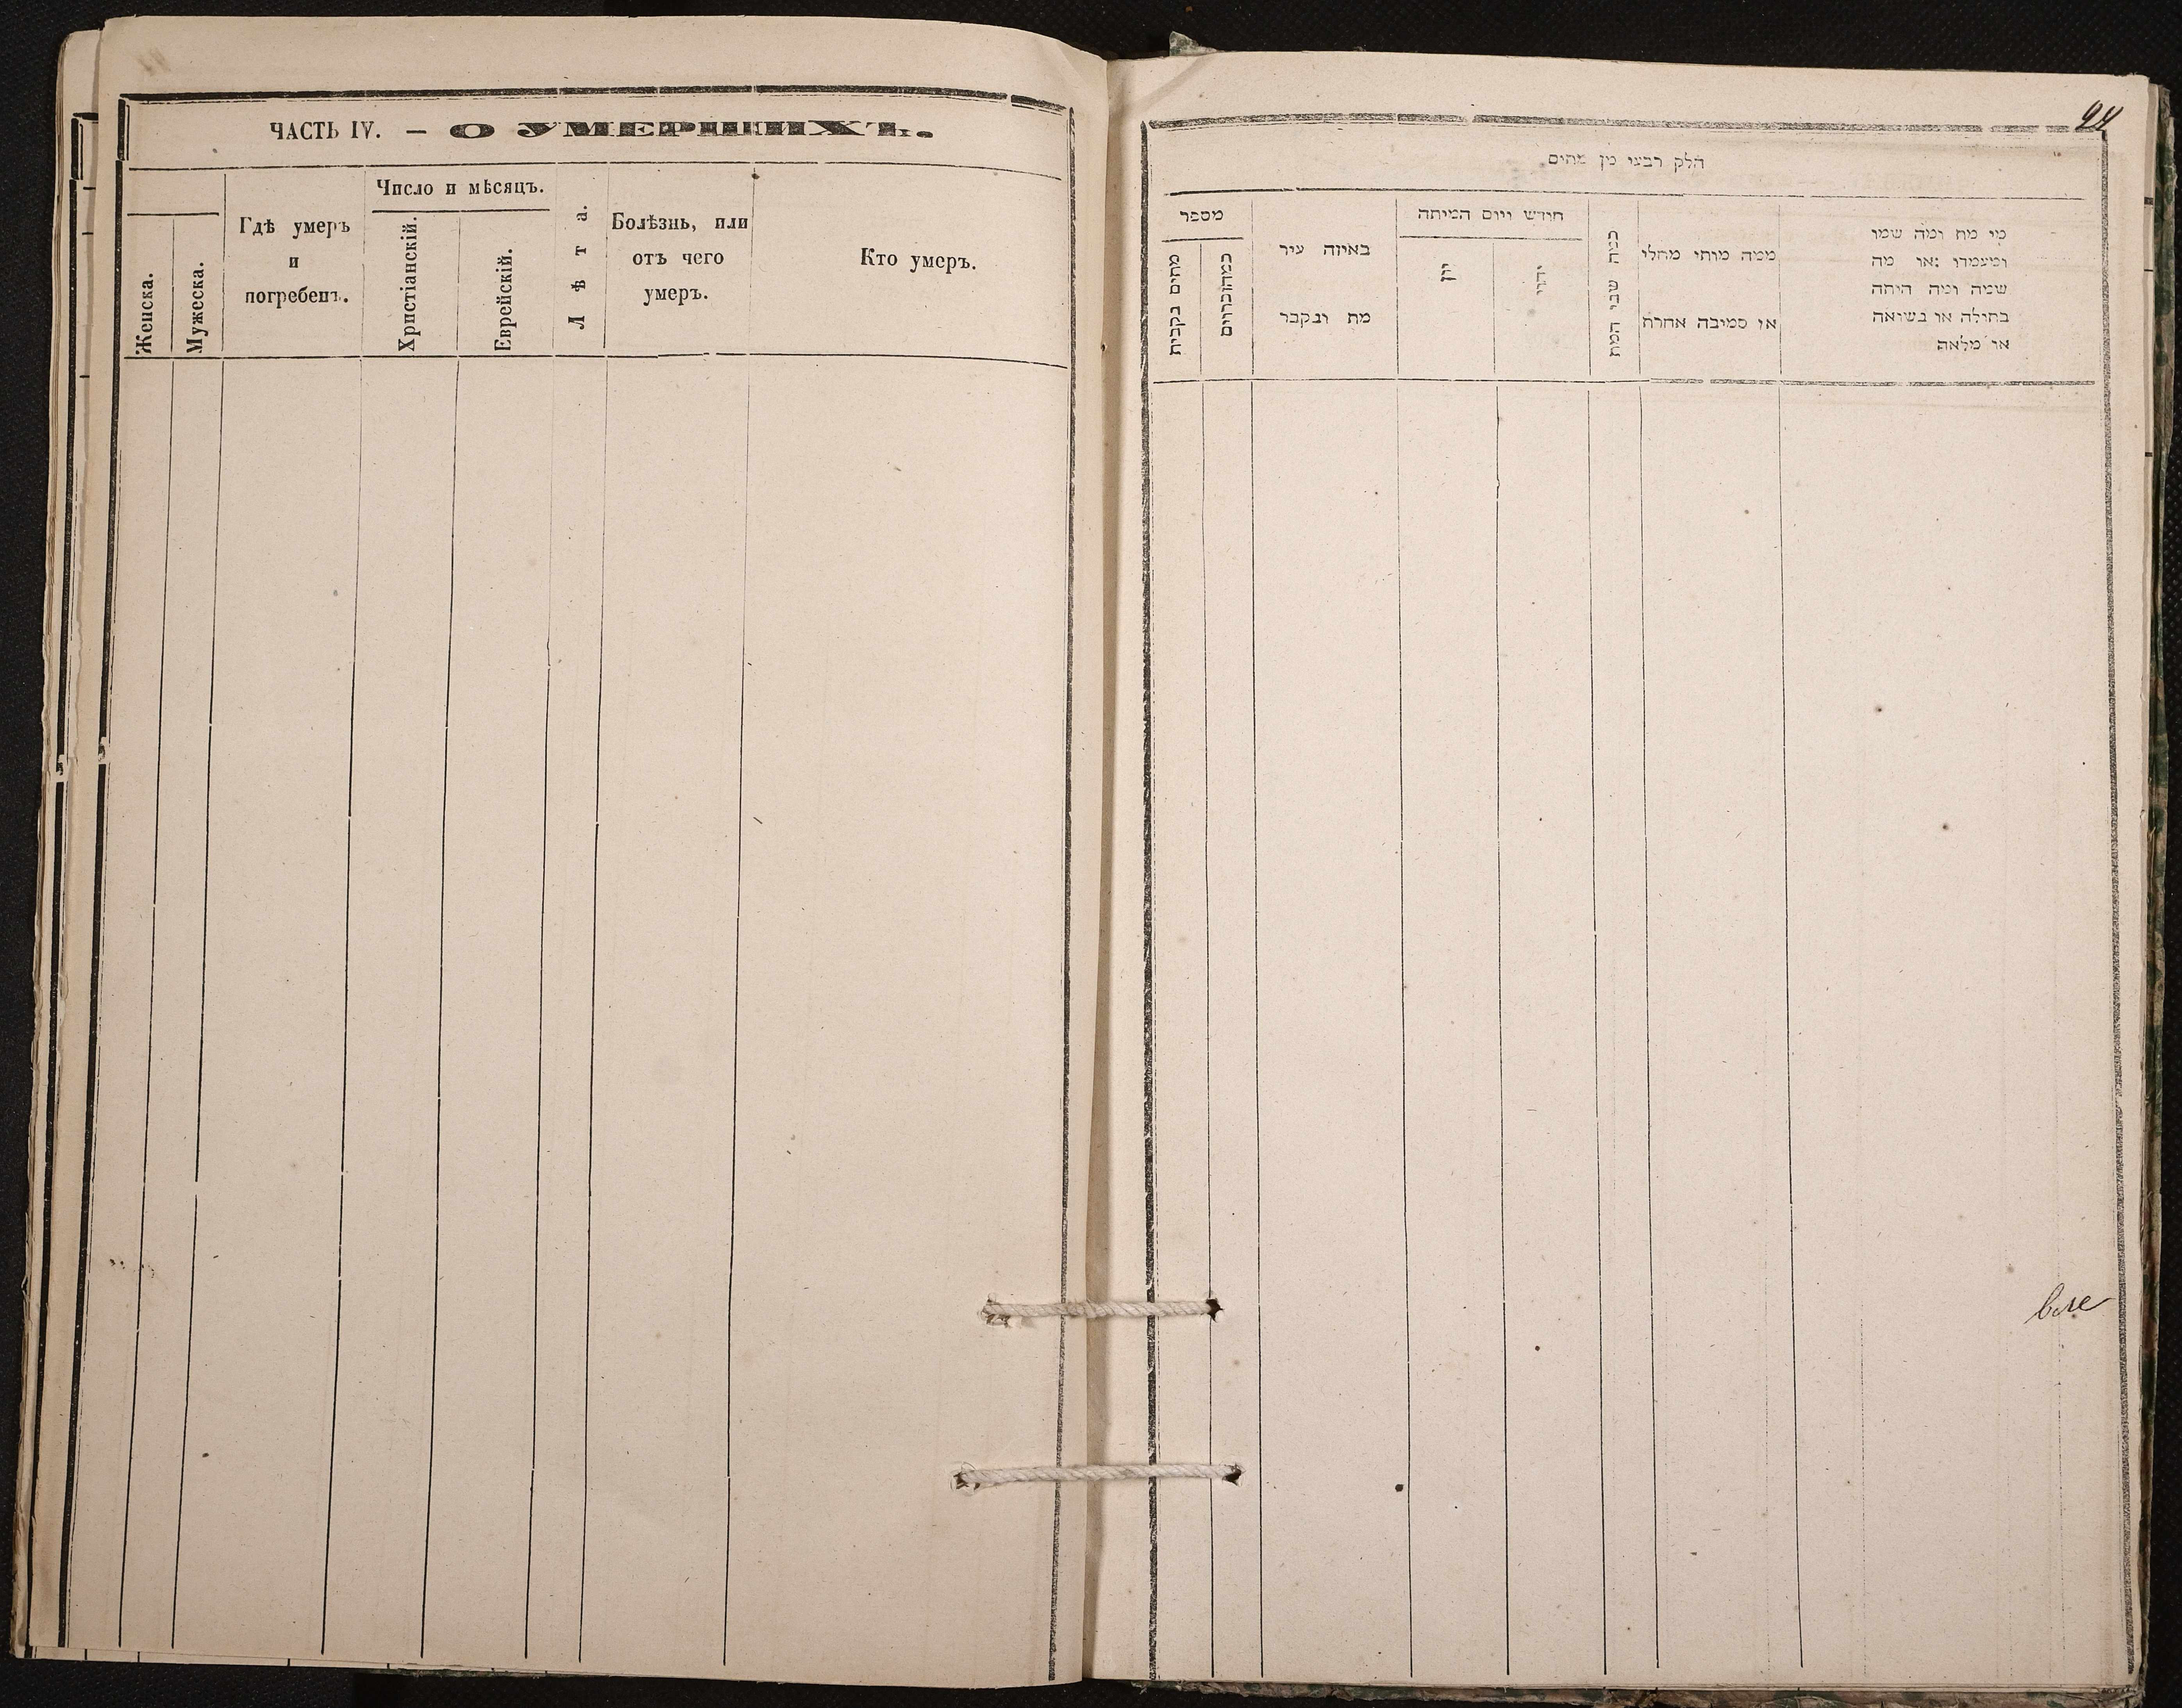 ЧАСТЬ IV. — О УМЕРШИХЪ.
Женска.
Мужеска.
Гдѣ умеръ
и
погребенъ.
Число и мѣсяцъ.
Христіанскій.
Еврейскій.
Лѣта.
Болѣзнь, или
отъ чего
умеръ.
Кто умеръ.
חלק רבעי מן מתים
מספר
באיזה עיר
מת ונקבר
חודש ויום המיתה
יון
יהודי
כמה שני המת
ממה מותי מחלי
או סמיבה אחרת
מי מת ומה שמו
ומעמדו או מה
שמה ומה היתה
בתולה או נשואה
או מלאה